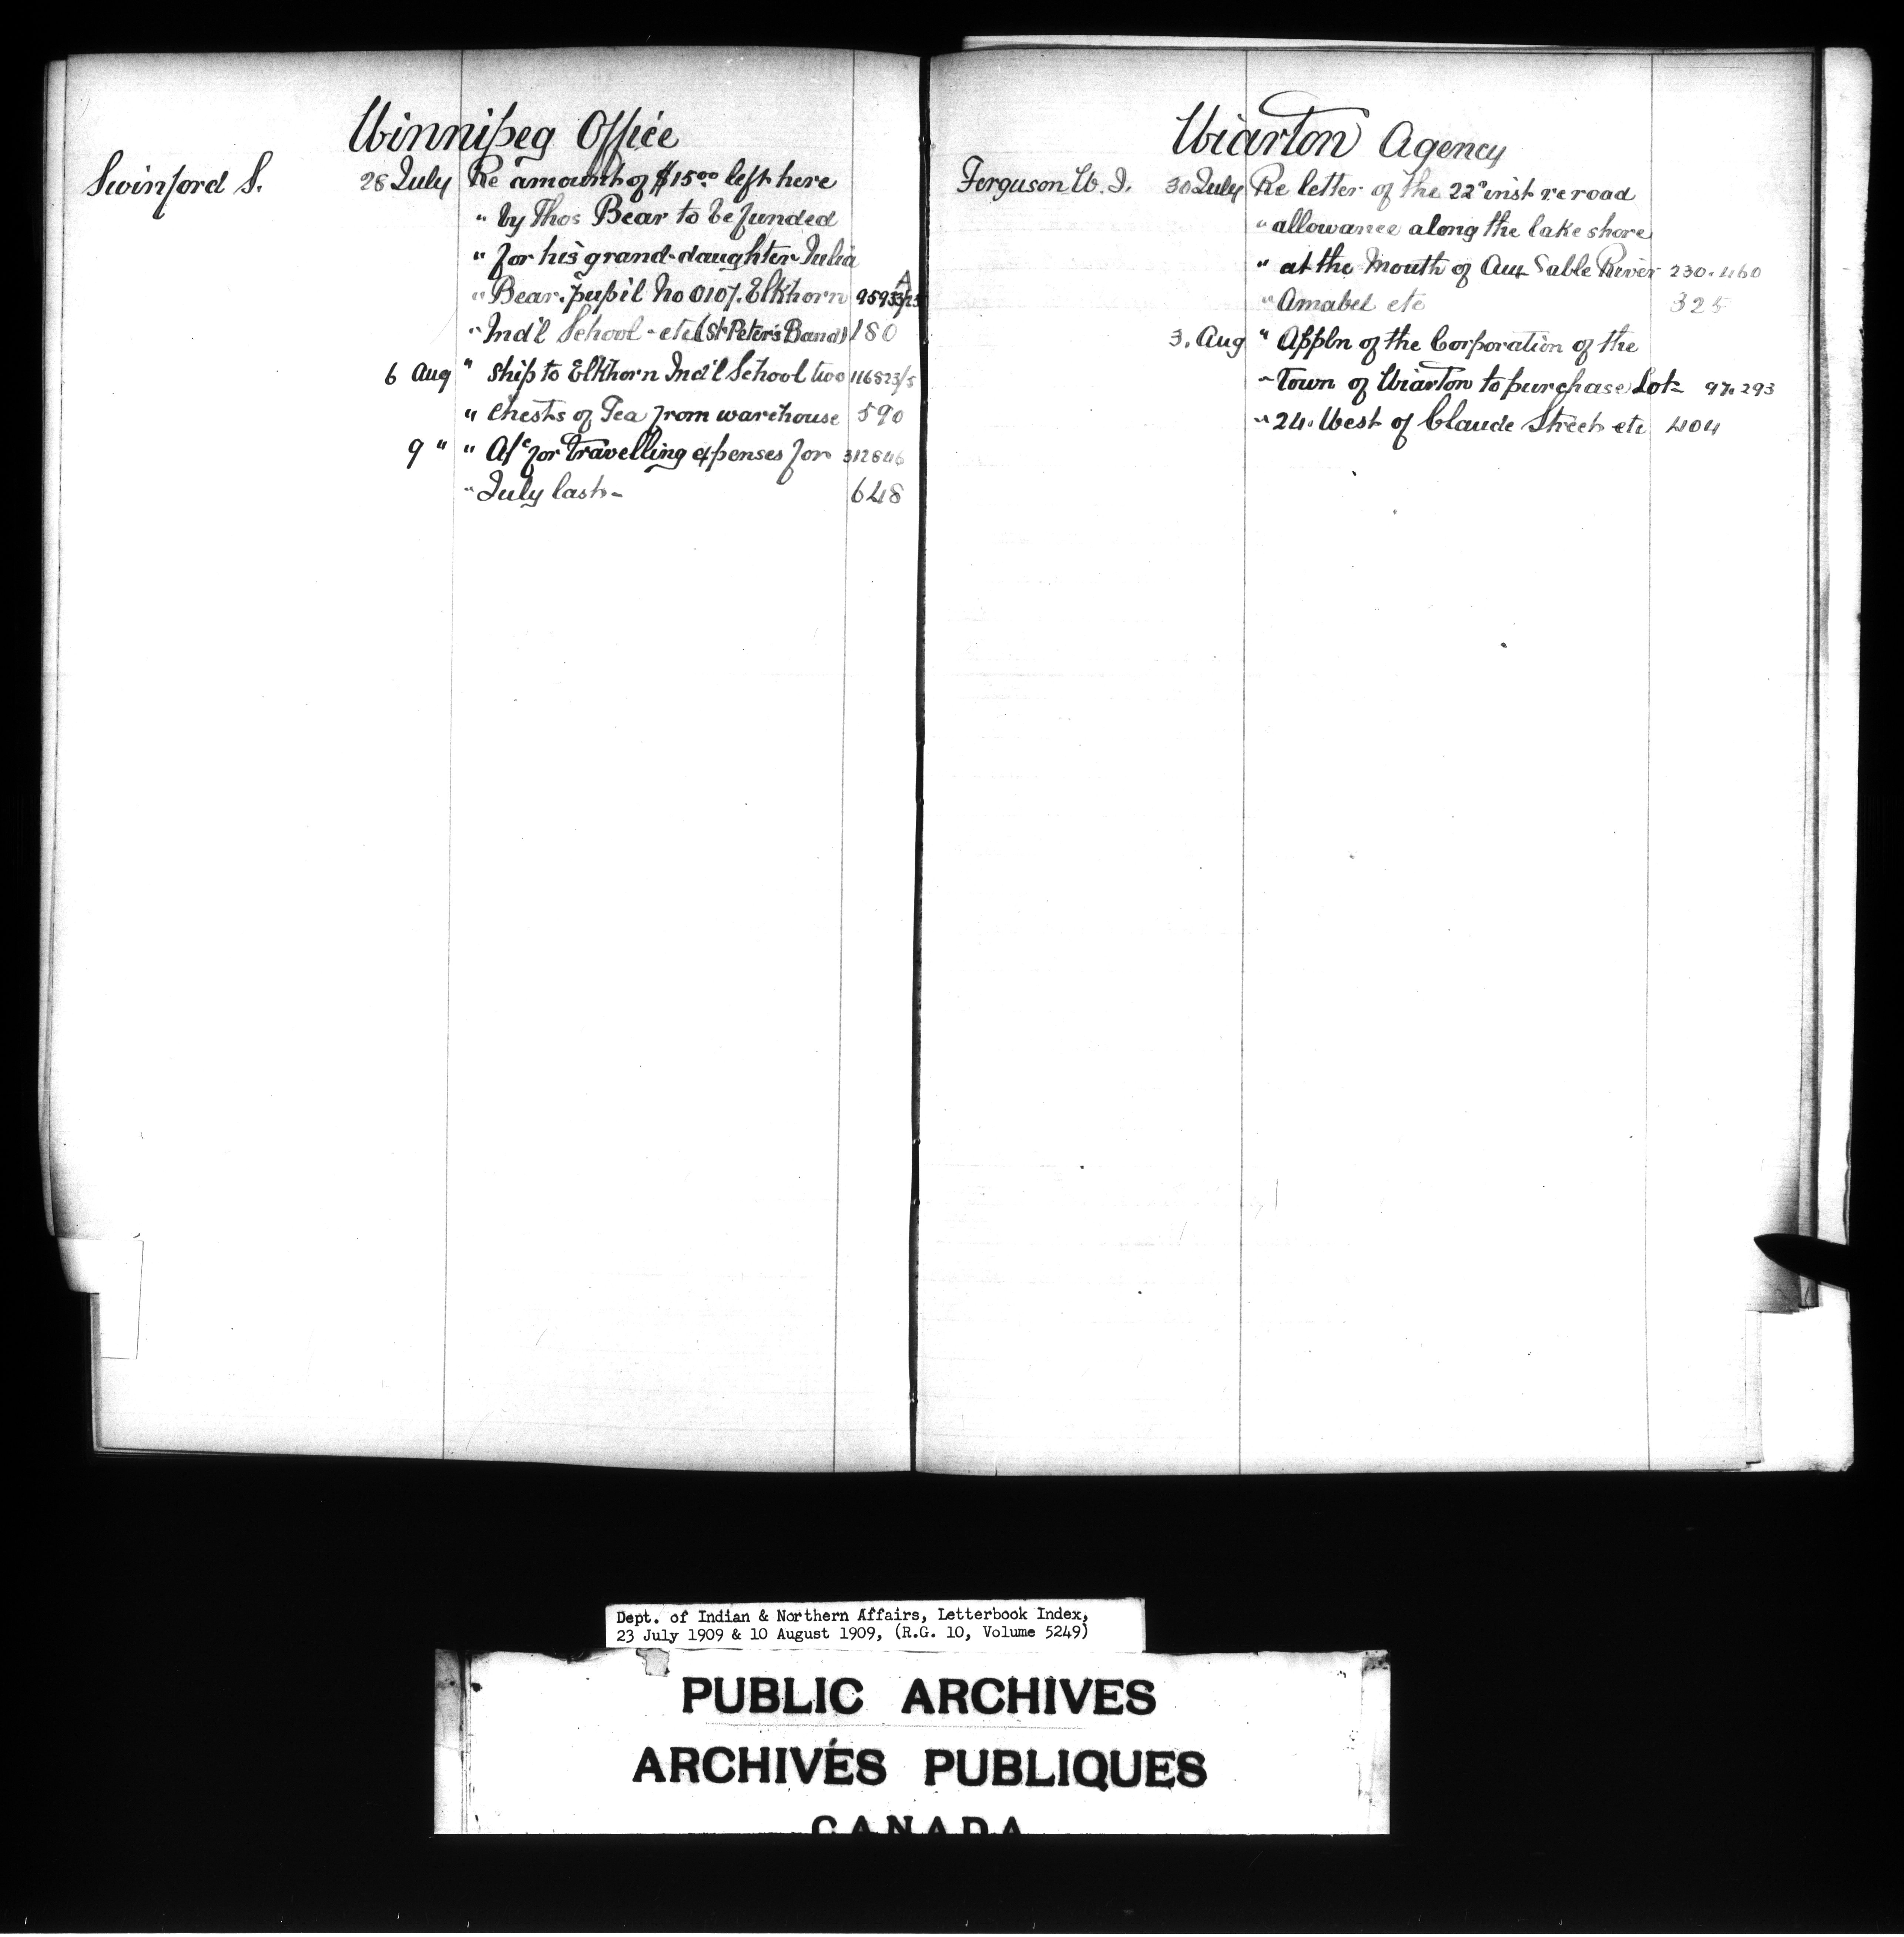 Winnipeg Office
Swinford S. 28 July Re amount of $15.00 left here
" by Thos Bear to be funded
" for his grand-daughter Julia
" Bear. pupil No 0107. Elkhorn
" Ind'l School - etc (St Peter's Band) 180
6 Aug " ship to Elkhorn Ind'l School two 116823/5
" chests of Tea from warehouse 590
9 " " A/c for travelling expenses for 312646
" July last - 648
Wiarton Agency
Ferguson W. I. 30 July Re letter of the 22d inst re road
" allowance along the lake shore
" at the Mouth of Aux Sable River 230.460
" Amabel etc 325
3. Aug " Appln of the Corporation of the
" Town of Wiarton to purchase Lot - 97.293
" 24. West of Claude Street etc 404
Dept. of Indian & Northern Affairs, Letterbook Index,
23 July 1909 & 10 August 1909, (R.G. 10, Volume 5249)
PUBLIC ARCHIVES
ARCHIVES PUBLIQUES
CANADA